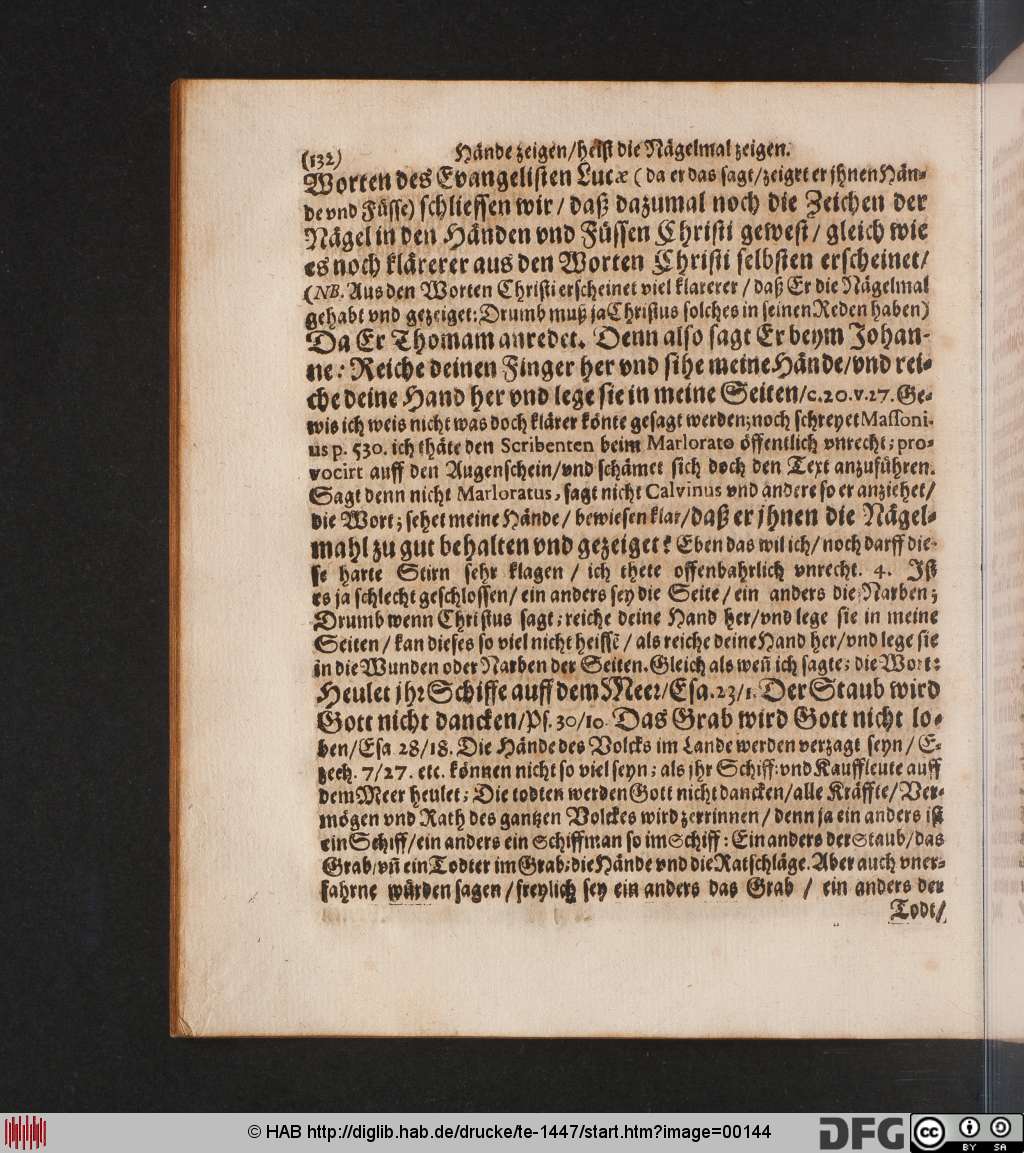 (132) Hände zeigen/heist die Nägelmal zeigen.
Worten des Evangelisten Lucæ (da er das sagt/zeiget er jhnen Hän-
de vnd Füsse) schliessen wir/ daß dazumal noch die Zeichen der
Nägel in den Händen vnd Füssen Christi gewest/ gleich wie
es noch klärerer aus den Worten Christi selbsten erscheinet/
(NB. Aus den Worten Christi erscheinet viel klarerer/ daß Er die Nägelmal
gehabt vnd gezeiget: Drumb muß ja Christus solches in seinen Reden haben)
Da Er Thomam anredet. Denn also sagt Er beym Johan-
ne: Reiche deinen Finger her vnd sihe meine Hände/vnd rei-
che deine Hand her vnd lege sie in meine Seiten/c.20.v.27. Ge-
wis ich weis nicht was doch klärer könte gesagt werden; noch schreyet Massoni-
us p. 530. ich thäte den Scribenten beim Marlorato öffentlich vnrecht; pro-
vocirt auff den Augenschein/vnd schämet sich doch den Text anzuführen.
Sagt denn nicht Marloratus, sagt nicht Calvinus vnd andere so er anziehet/
die Wort; sehet meine Hände/ bewiesen klar/daß er jhnen die Nägel-
mahl zu gut behalten vnd gezeiget? Eben das wil ich/ noch darff die-
se harte Stirn sehr klagen / ich thete offenbahrlich vnrecht. 4. Ist
es ja schlecht geschlossen/ ein anders sey die Seite/ ein anders die Narben;
Drumb wenn Christus sagt; reiche deine Hand her/vnd lege sie in meine
Seiten/ kan dieses so viel nicht heissē/ als reiche deine Hand her/vnd lege sie
in die Wunden oder Narben der Seiten. Gleich als weñ ich sagte; die Wort:
Heulet jhr Schiffe auff dem Meer/Esa.23/1. Der Staub wird
Gott nicht dancken/Ps.30/10. Das Grab wird Gott nicht lo-
ben/Esa 28/18. Die Hände des Volcks im Lande werden verzagt seyn/ E-
zech. 7/27. etc. können nicht so viel seyn; als jhr Schiff- vnd Kauffleute auff
dem Meer heulet; Die todten werden Gott nicht dancken/alle Kräffte/Ver-
mögen vnd Rath des gantzen Volckes wird zerrinnen/ denn ja ein anders ist
ein Schiff/ein anders ein Schiffman so im Schiff: Ein anders der Staub/das
Grab/vñ ein Todter im Grab; die Hände vnd die Ratschläge. Aber auch vner-
fahrne würden sagen/freylich sey ein anders das Grab / ein anders der
Todt/
© HAB http://diglib.hab.de/drucke/te-1447/start.htm?image=00144
DFG
cc BY SA